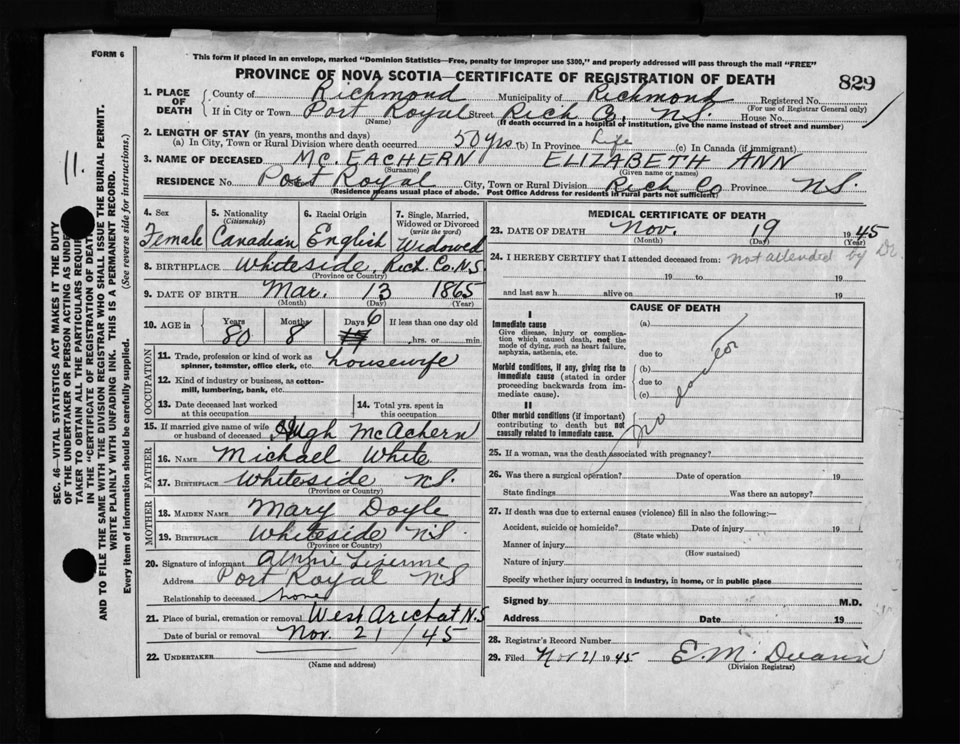 FORM 6
This form if placed in an envelope, marked "Dominion Statistics—Free, penalty for improper use $300," and properly addressed will pass through the mail "FREE"
PROVINCE OF NOVA SCOTIA—CERTIFICATE OF REGISTRATION OF DEATH
829
1. PLACE OF DEATH County of Richmond Municipality of Richmond Registered No.
(For use of Registrar General only)
If in City or Town Port Royal Street Rich Co. N.S. House No.
(Name) (If death occurred in a hospital or institution, give the name instead of street and number)
2. LENGTH OF STAY (in years, months and days)
(a) In City, Town or Rural Division where death occurred 50 yrs (b) In Province Life (c) In Canada (if immigrant)
3. NAME OF DECEASED MC. EACHERN ELIZABETH ANN
(Surname) (Given name or names)
RESIDENCE No. Port Royal City, Town or Rural Division Rich Co Province N.S.
(Residence means usual place of abode. Post Office Address for residents in rural parts not sufficient)
4. Sex Female
5. Nationality (Citizenship) Canadian
6. Racial Origin English
7. Single, Married, Widowed or Divorced (write the word) Widowed
8. BIRTHPLACE Whiteside, Rich. Co. N.S.
(Province or Country)
9. DATE OF BIRTH Mar. 13 1865
(Month) (Day) (Year)
10. AGE in Years 80 Months 8 Days 6 If less than one day old
hrs. or min.
OCCUPATION
11. Trade, profession or kind of work as spinner, teamster, office clerk, etc. housewife
12. Kind of industry or business, as cotton-mill, lumbering, bank, etc.
13. Date deceased last worked at this occupation
14. Total yrs. spent in this occupation
15. If married give name of wife or husband of deceased Hugh McAchern
FATHER
16. NAME Michael White
17. BIRTHPLACE Whiteside N.S.
(Province or Country)
MOTHER
18. MAIDEN NAME Mary Doyle
19. BIRTHPLACE Whiteside N.S.
(Province or Country)
20. Signature of informant
Address Port Royal N.S
Relationship to deceased none
21. Place of burial, cremation or removal West Arichat N.S
Date of burial or removal Nov. 21 / 45
22. UNDERTAKER
(Name and address)
MEDICAL CERTIFICATE OF DEATH
23. DATE OF DEATH Nov. 19 1945
(Month) (Day) (Year)
24. I HEREBY CERTIFY that I attended deceased from: not attended by Dr.
19 to 19
and last saw h alive on 19
CAUSE OF DEATH
I
Immediate cause
Give disease, injury or complication which caused death, not the mode of dying, such as heart failure, asphyxia, asthenia, etc.
(a)
due to
Morbid conditions, if any, giving rise to immediate cause (stated in order proceeding backwards from immediate cause).
(b)
due to
(c)
II
Other morbid conditions (if important) contributing to death but not causally related to immediate cause.
no doctor
25. If a woman, was the death associated with pregnancy?
26. Was there a surgical operation? Date of operation 19
State findings Was there an autopsy?
27. If death was due to external causes (violence) fill in also the following:—
Accident, suicide or homicide? Date of injury 19
(State which)
Manner of injury
(How sustained)
Nature of injury
Specify whether injury occurred in industry, in home, or in public place
Signed by M.D.
Address Date 19
28. Registrar's Record Number
29. Filed Nov 21 1945 E. M.
(Division Registrar)
11.
SEC. 46—VITAL STATISTICS ACT MAKES IT THE DUTY
OF THE UNDERTAKER OR PERSON ACTING AS UNDER
TAKER TO OBTAIN ALL THE PARTICULARS REQUIR
IN THE "CERTIFICATE OF REGISTRATION OF DEAT
AND TO FILE THE SAME WITH THE DIVISION REGISTRAR WHO SHALL ISSUE THE BURIAL PERMIT.
WRITE PLAINLY WITH UNFADING INK. THIS IS A PERMANENT RECORD.
Every item of information should be carefully supplied. (See reverse side for instructions.)